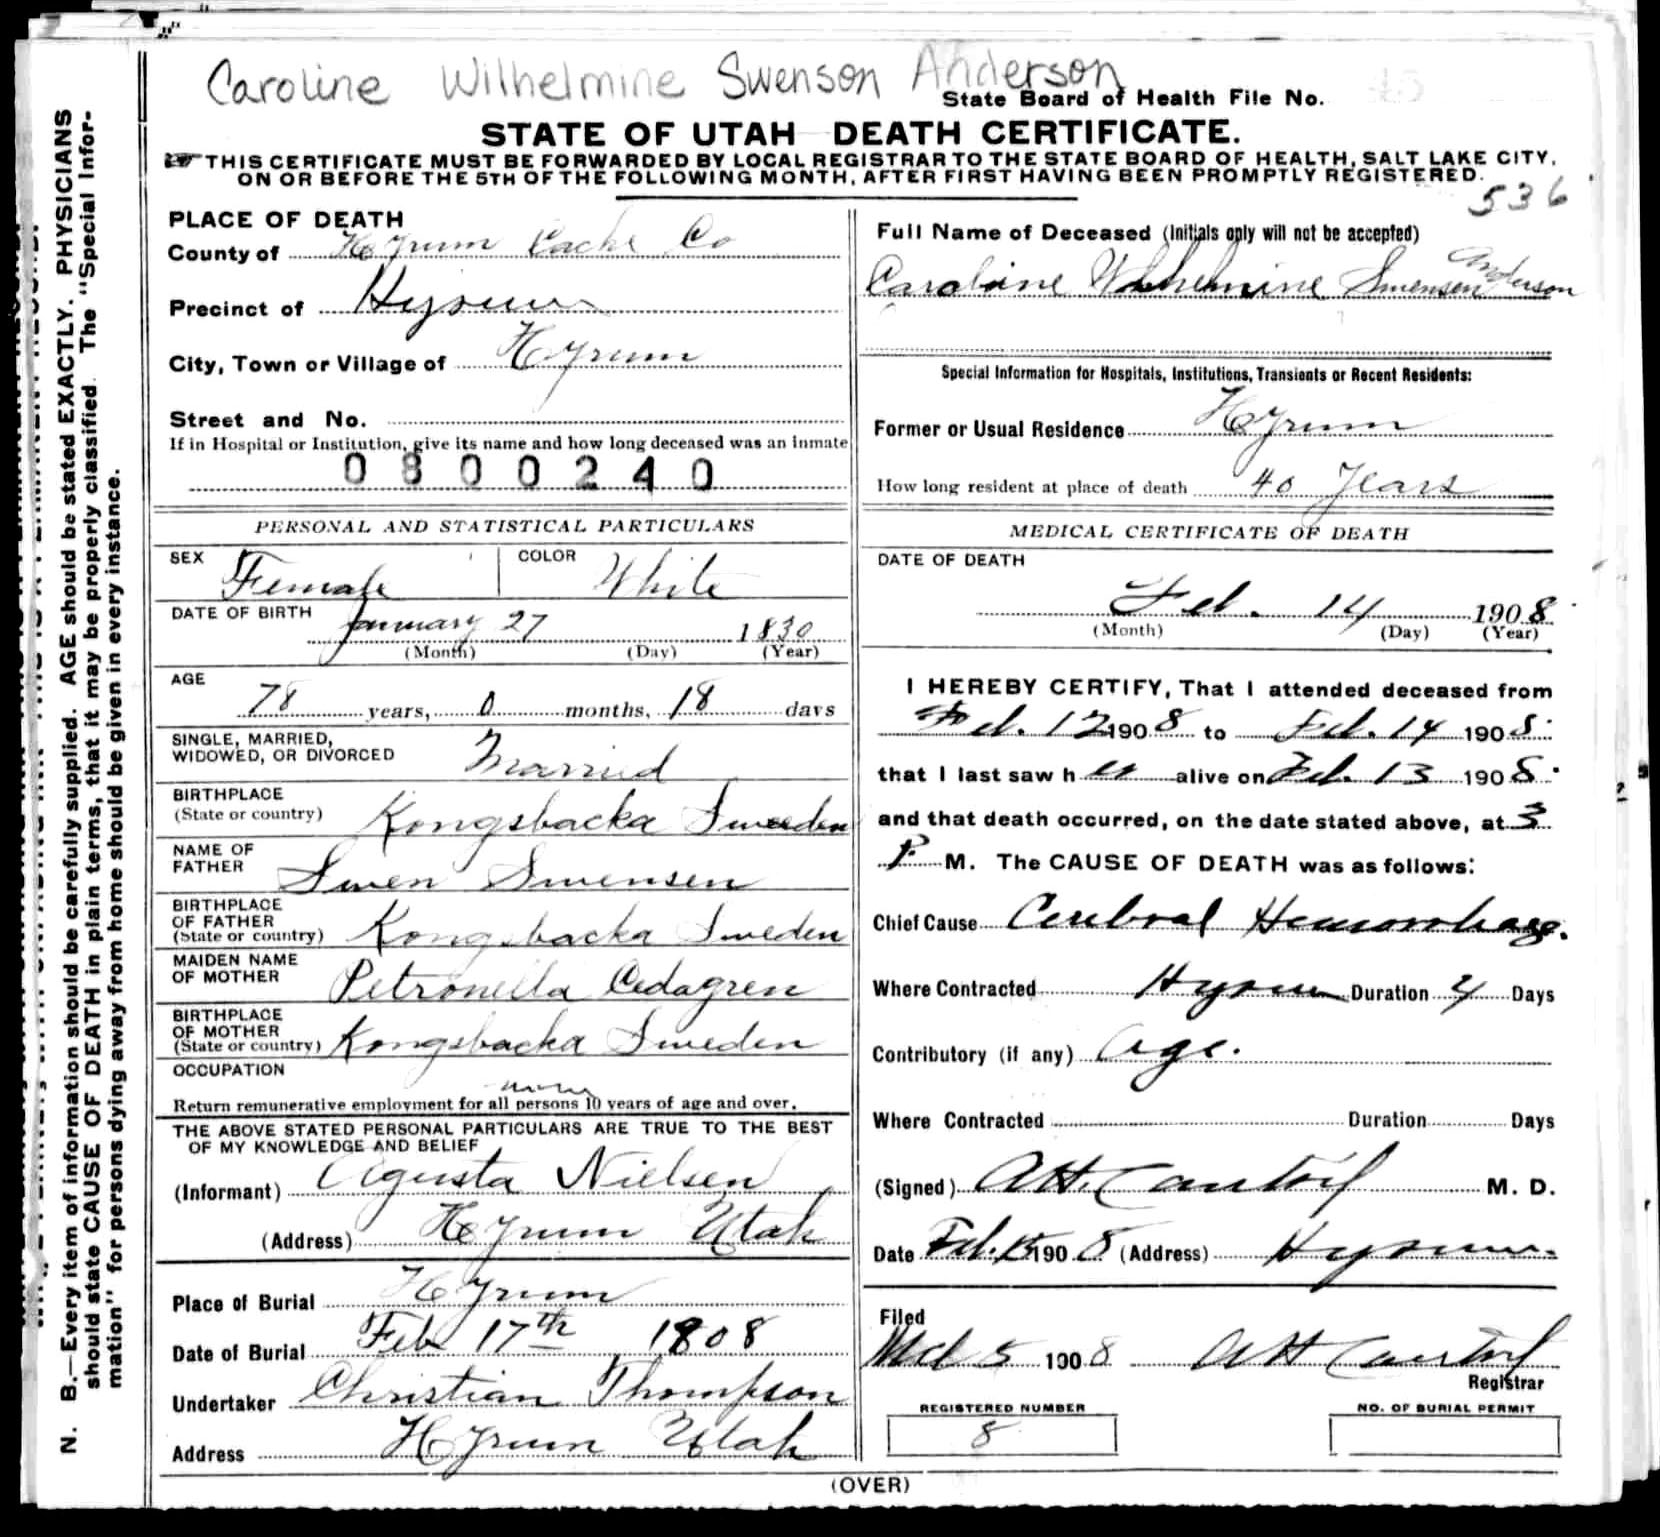 Caroline Wilhelmine Swenson Anderson
State Board of Health File No. 45
STATE OF UTAH DEATH CERTIFICATE.
THIS CERTIFICATE MUST BE FORWARDED BY LOCAL REGISTRAR TO THE STATE BOARD OF HEALTH, SALT LAKE CITY,
ON OR BEFORE THE 5TH OF THE FOLLOWING MONTH, AFTER FIRST HAVING BEEN PROMPTLY REGISTERED.
536
PLACE OF DEATH
County of Hyrum Cache Co
Precinct of Hyrum
City, Town or Village of Hyrum
Street and No.
If in Hospital or Institution, give its name and how long deceased was an inmate
0800240
PERSONAL AND STATISTICAL PARTICULARS
SEX Female COLOR White
DATE OF BIRTH January 27 1830
(Month) (Day) (Year)
AGE
78 years, 0 months, 18 days
SINGLE, MARRIED,
WIDOWED, OR DIVORCED Married
BIRTHPLACE
(State or country) Kongsbacka Sweeden
NAME OF
FATHER Swen Swensen
BIRTHPLACE
OF FATHER
(State or country) Kongsbacka Sweden
MAIDEN NAME
OF MOTHER Petronella Cedagren
BIRTHPLACE
OF MOTHER
(State or country) Kongsbacka Sweden
OCCUPATION
Return remunerative employment for all persons 10 years of age and over.
THE ABOVE STATED PERSONAL PARTICULARS ARE TRUE TO THE BEST
OF MY KNOWLEDGE AND BELIEF
(Informant) Agusta Nielsen
(Address) Hyrum Utah
Place of Burial Hyrum
Date of Burial Feb 17th 1808
Undertaker Christian Thompson
Address Hyrum Utah
Full Name of Deceased (Initials only will not be accepted)
Caroline Wilhelmine Swensen Anderson
Special Information for Hospitals, Institutions, Transients or Recent Residents:
Former or Usual Residence Hyrum
How long resident at place of death 40 Years
MEDICAL CERTIFICATE OF DEATH
DATE OF DEATH
Feb. 14 1908
(Month) (Day) (Year)
I HEREBY CERTIFY, That I attended deceased from
Feb. 12 1908 to Feb. 14 1908
that I last saw her alive on Feb. 13 1908
and that death occurred, on the date stated above, at 3
P. M. The CAUSE OF DEATH was as follows:
Chief Cause Cerebral Hemorrhage.
Where Contracted Hyrum Duration 4 Days
Contributory (if any) Age.
Where Contracted Duration Days
(Signed) M. D.
Date Feb. 15 1908 (Address) Hyrum
Filed
Mch 5 1908
Registrar
REGISTERED NUMBER
8
NO. OF BURIAL PERMIT
(OVER)
N. B.—Every item of information should be carefully supplied. AGE should be stated EXACTLY. PHYSICIANS
should state CAUSE OF DEATH in plain terms, that it may be properly classified. The "Special Infor-
mation" for persons dying away from home should be given in every instance.